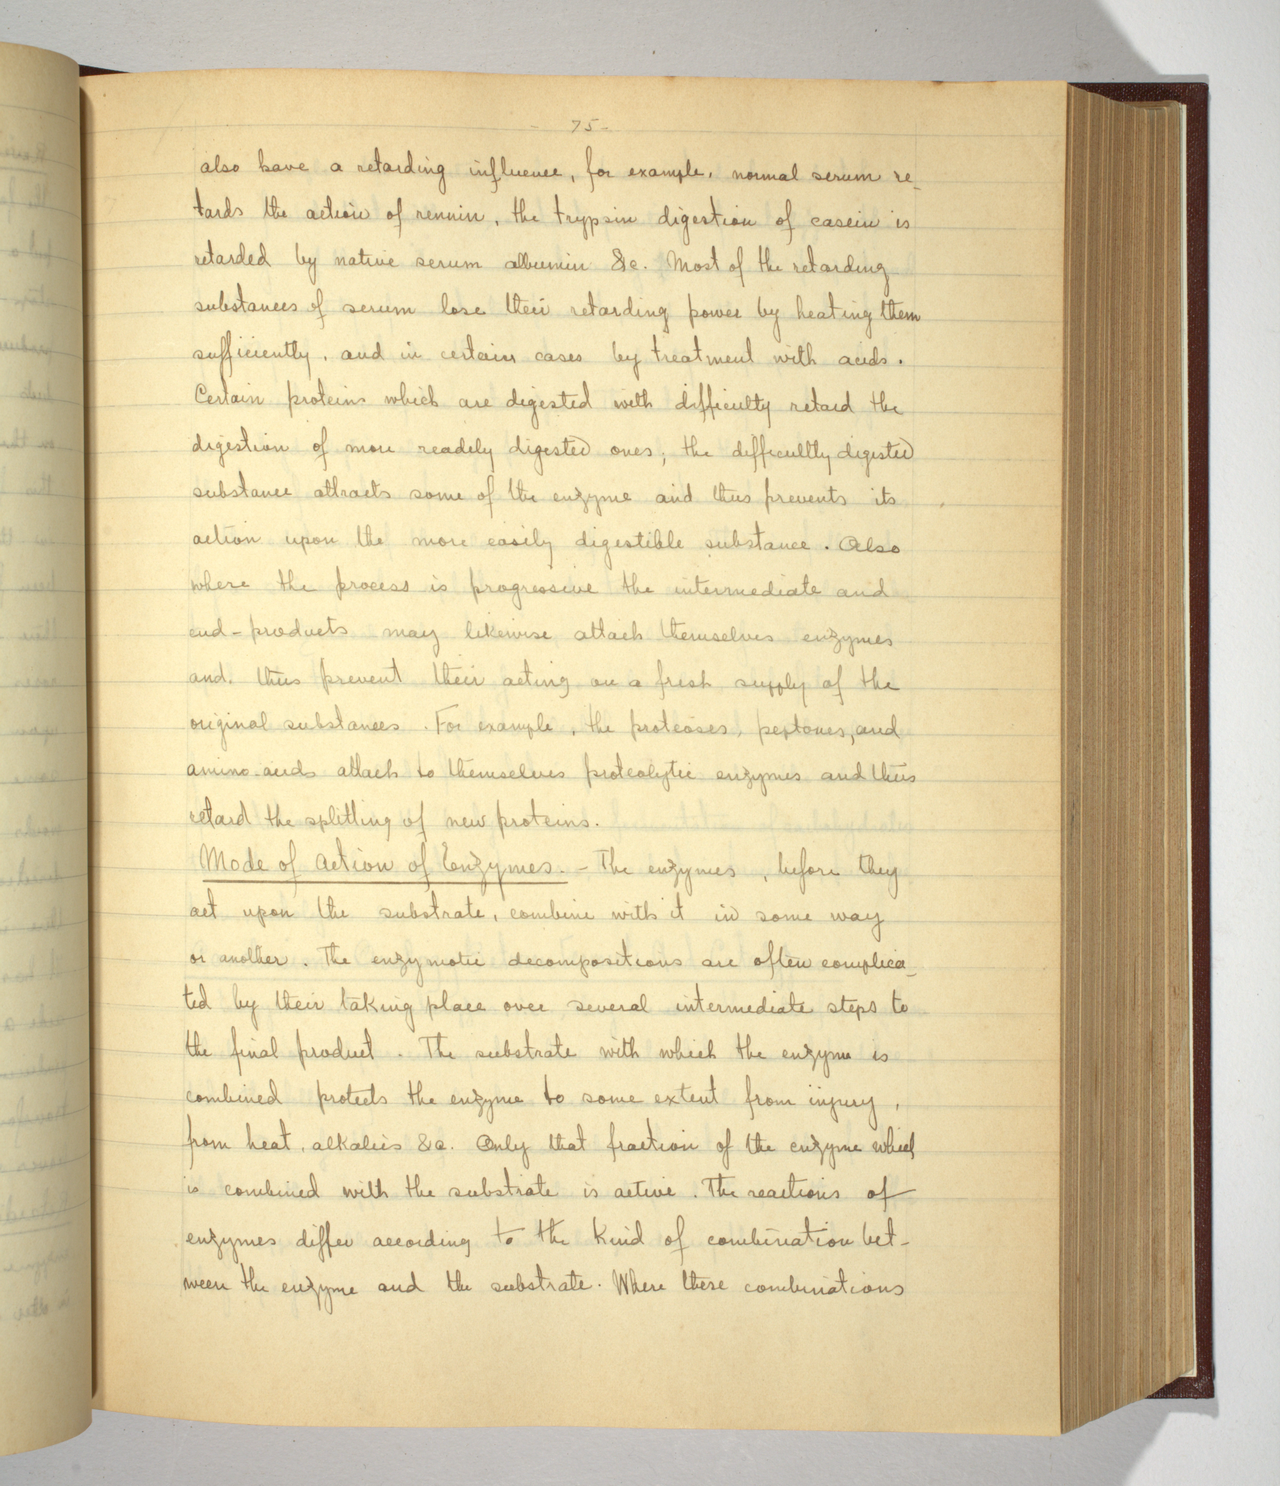 - 75 -
also have a retarding influence, for example, normal serum re-
tards the action of rennin, the trypsin digestion of casein is
retarded by native serum albumin &c. Most of the retarding
substances of serum lose their retarding power by heating them
sufficiently, and in certain cases by treatment with acids.
Certain proteins which are digested with difficulty retard the
digestion of more readily digested ones; the difficultly digested
substance attracts some of the enzyme and thus prevents its
action upon the more easily digestible substance. Also
where the process is progressive the intermediate and
end-products may likewise attach themselves enzymes
and thus prevent their acting on a fresh supply of the
original substances. For example, the proteoses, peptones, and
amino-acids attach to themselves proteolytic enzymes and thus
retard the splitting of new proteins.
Mode of Action of Enzymes. - The enzymes, before they
act upon the substrate, combine with it in some way
or another. The enzymotic decompositions are often complica-
ted by their taking place over several intermediate steps to
the final product. The substrate with which the enzyme is
combined protects the enzyme to some extent from injury,
from heat, alkalies &c. Only that fraction of the enzyme which
is combined with the substrate is active. The reactions of
enzymes differ according to the kind of combination bet-
ween the enzyme and the substrate. Where these combinations